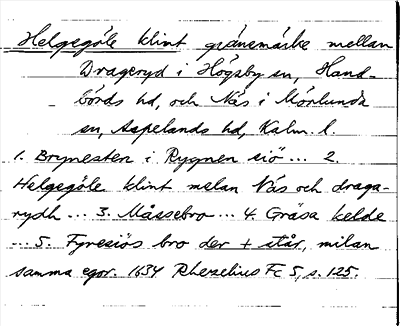 Helgegöle klint gränsmärke mellan
Drageryd i Högsby sn, Hand-
börds hd, och Näs i Mörlunda
sn, Aspelands hd, Kalm. l.
1. Brynesten i Rygnen siö ... 2.
Helgegöle klint melan Näs och draga-
rydh ... 3. Måssebro ... 4. Gräsa kelde
... 5. Fyresiös bro der + står, milan
samma egor. 1634 Rhezelius Fc 5, s. 125.